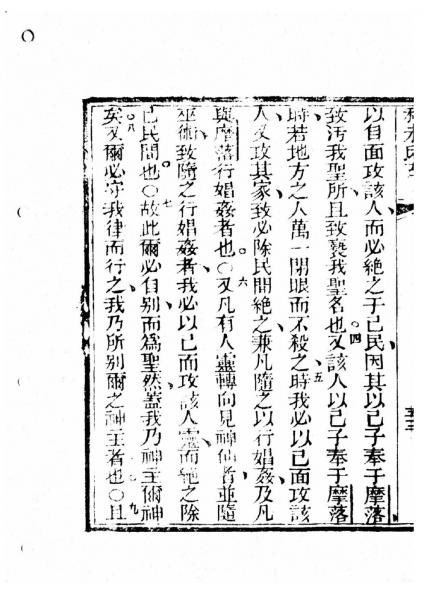 以自面攻該人而必絶之于己民因其以己子奉于摩落
致汚我聖所且致褻我聖名也○四又該人以己子奉于摩落
時若地方之人萬一閉眼而不殺之時五我必以己面攻該
人又攻其家致必除民間絶之兼凡隨之以行娼姦及凡
與摩落行娼姦者也○六又凡有人靈轉向見神仙者並隨
巫術致隨之行娼姦者我必以己面攻該人靈而絶之除
己民間也○七故此爾必自别而爲聖然蓋我乃神主爾神
○八矣又爾必守我律而行之我乃所别爾之神主者也○九且